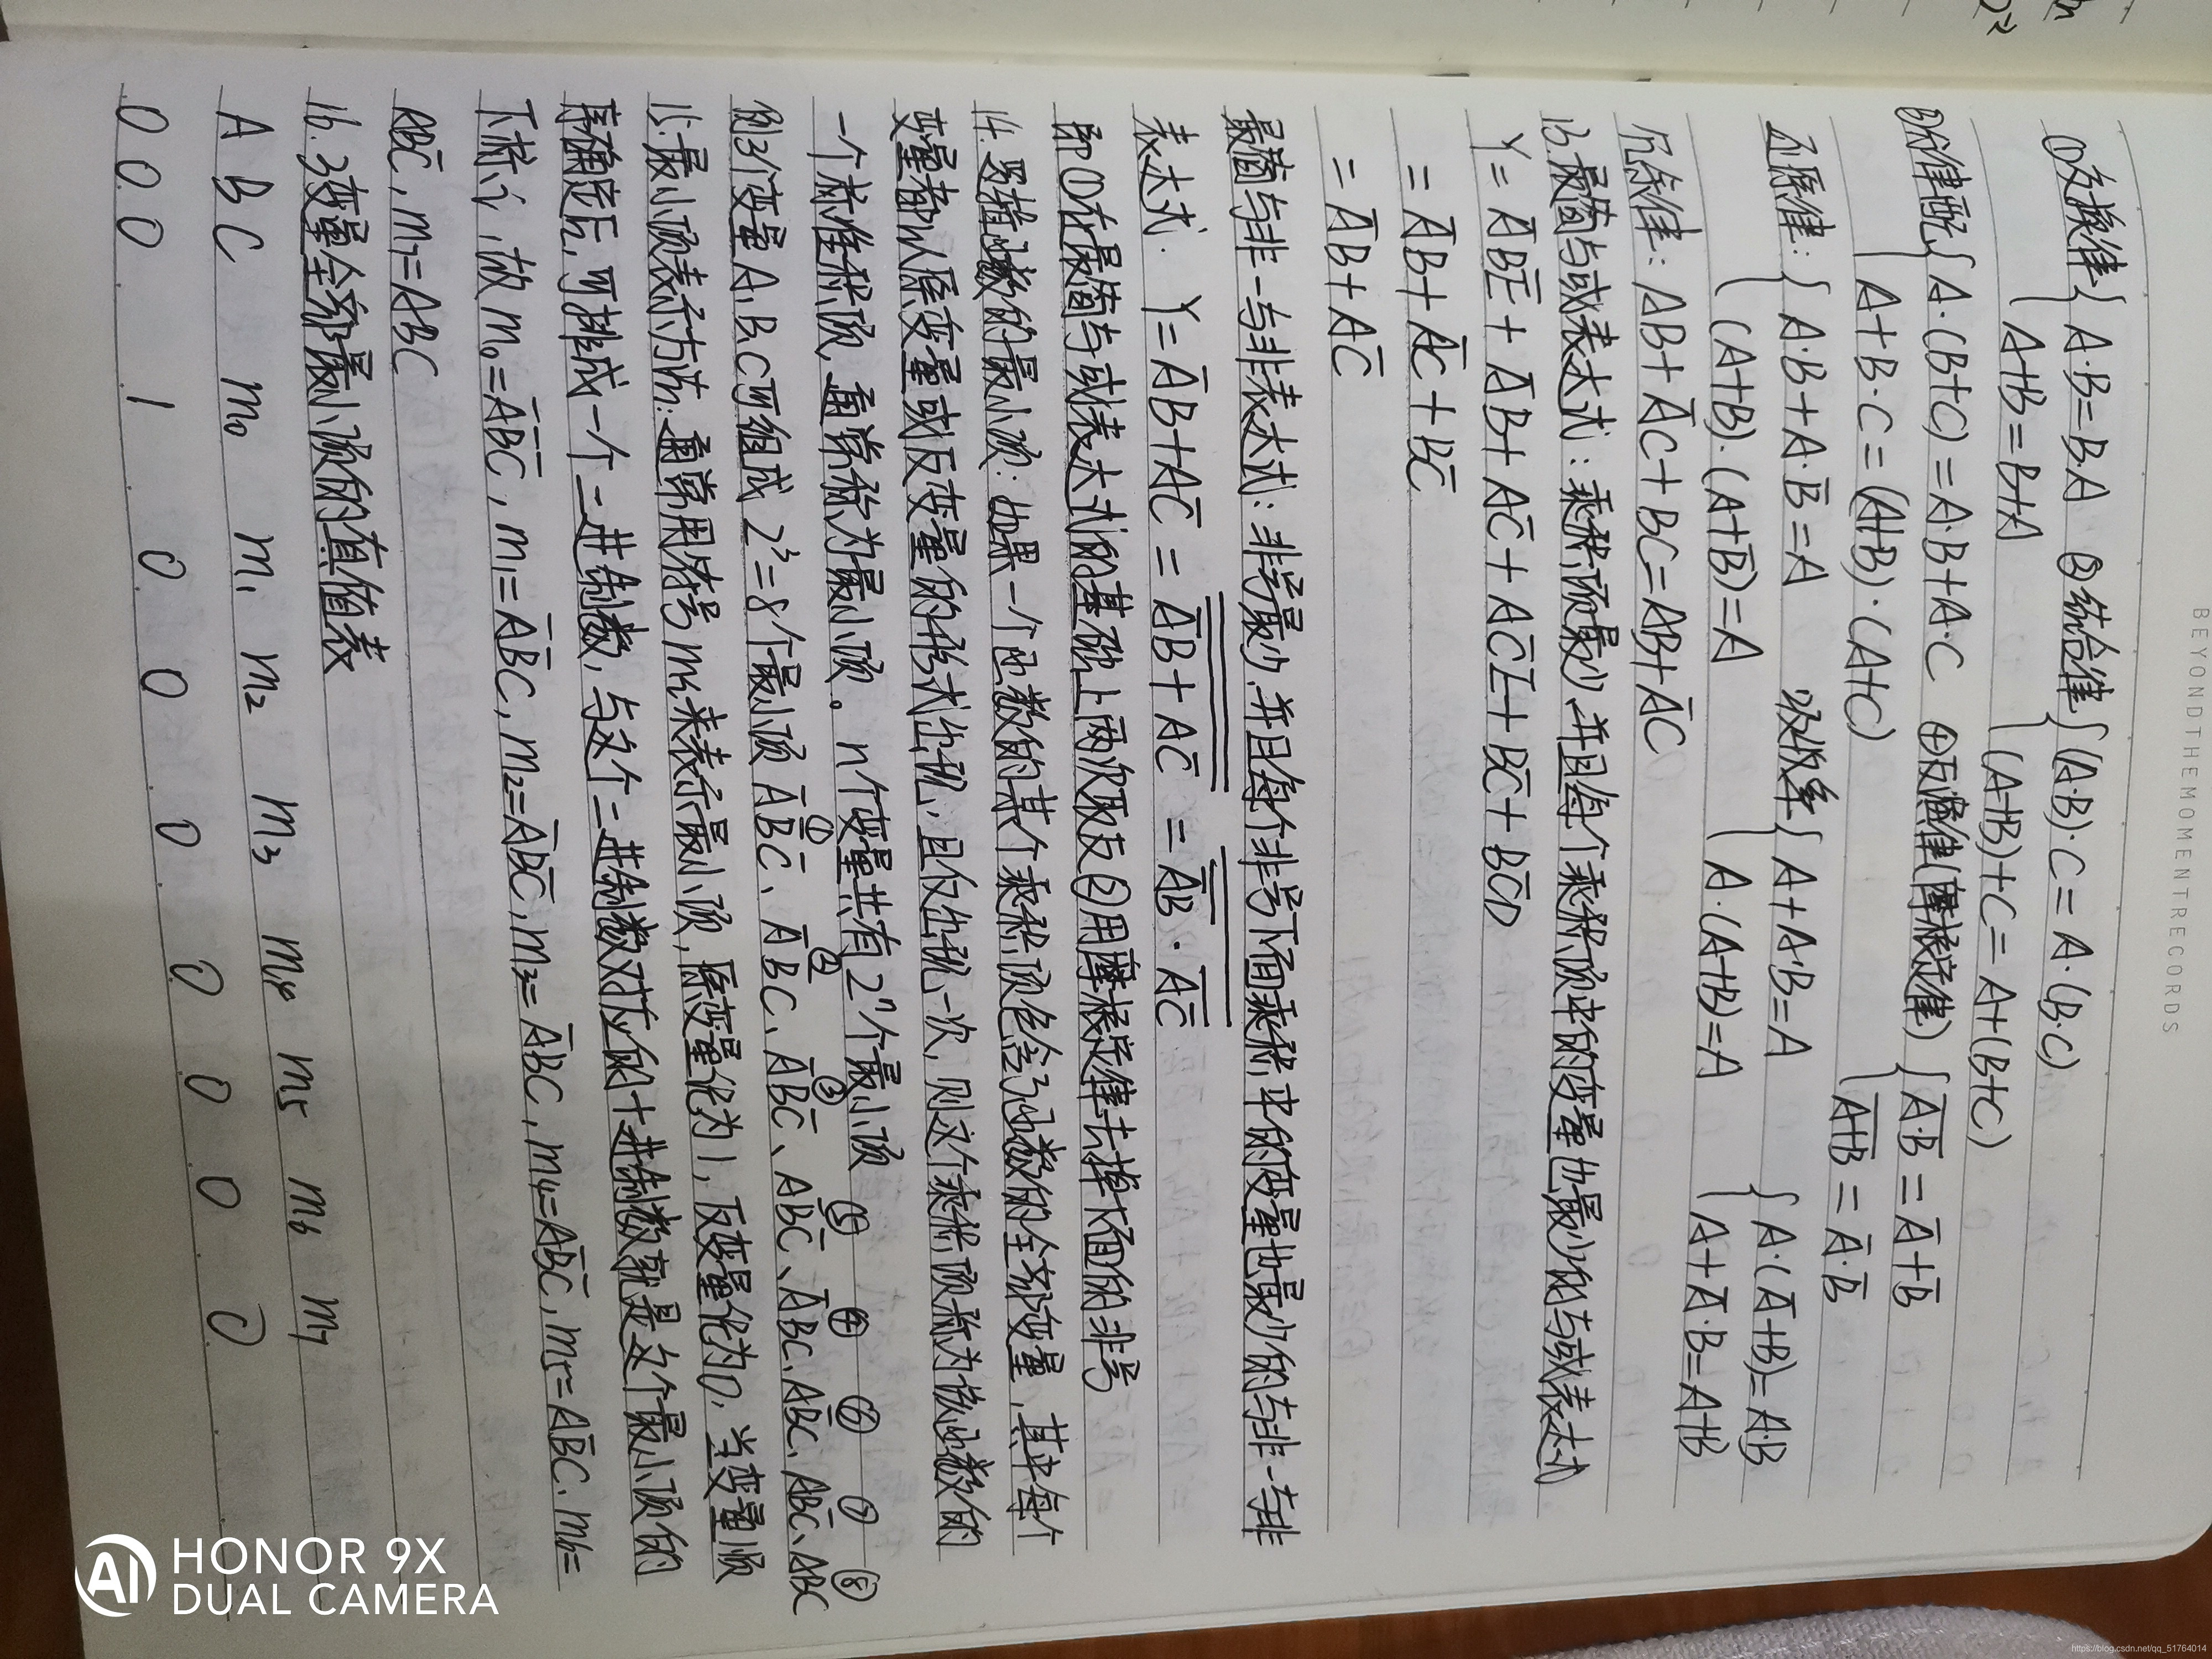 BEYONDTHEMOMENTRECORDS
①交换律{ A·B=B·A ②结合律{ (A·B)·C=A·(B·C)
A+B=B+A (A+B)+C=A+(B+C)
③分律配{ A·(B+C)=A·B+A·C ④反演律(摩根定律) { A̅·̅B̅ = A̅+B̅
A+B·C=(A+B)·(A+C) A̅+̅B̅ = A̅·B̅
还原律:{ A·B+A·B̅=A 吸收率{ A+A·B=A { A·(A̅+B)=A·B
(A+B)·(A+B̅)=A A·(A+B)=A A+A̅·B=A+B
冗余律: AB+A̅C+BC=AB+A̅C
13.最简与或表达式:乘积项最少,并且每个乘积项中的变量也最少的与或表达式
Y=A̅BE̅+A̅B+AC̅+AC̅E+BC̅+BC̅D
=A̅B+AC̅+BC̅
=A̅B+AC̅
最简与非-与非表达式:非号最少,并且每个非号下面乘积中的变量也最少的与非-与非
表达式. Y=A̅B+AC̅ = A̿̅B̿+̿A̿C̿̅ = A̅B̅·A̅C̅
即①在最简与或表达式的基础上两次取反②用摩根定律去掉下面的非号
14.逻辑函数的最小项:如果一个函数的某个乘积项包含了函数的全部变量,其中每个
变量都以原变量或反变量的形式出现,且仅出现一次,则这个乘积项称为该函数的
一个标准积项,通常称为最小项。n个变量共有2ⁿ个最小项
① ② ③ ⑤ ④ ⑥ ⑦ ⑧
例3个变量A、B、C可组成2³=8个最小项 A̅B̅C̅、A̅B̅C、A̅BC̅、AB̅C̅、A̅BC、AB̅C、ABC̅、ABC
15.最小项表示方法:通常用符号mi来表示最小项,原变量化为1,反变量化为0,当变量顺
序确定后,可排成一个二进制数,与这个二进制数对应的十进制数就是这个最小项的
下标i,故m₀=A̅B̅C̅,m₁=A̅B̅C,m₂=A̅BC̅,m₃=A̅BC,m₄=AB̅C̅,m₅=AB̅C,m₆=
ABC̅,m₇=ABC
16.3变量全部最小项的真值表
A B C m₀ m₁ m₂ m₃ m₄ m₅ m₆ m₇
0 0 0 1 0 0 0 0 0 0 0
HONOR 9X
DUAL CAMERA
AI
https://blog.csdn.net/qq_51764014